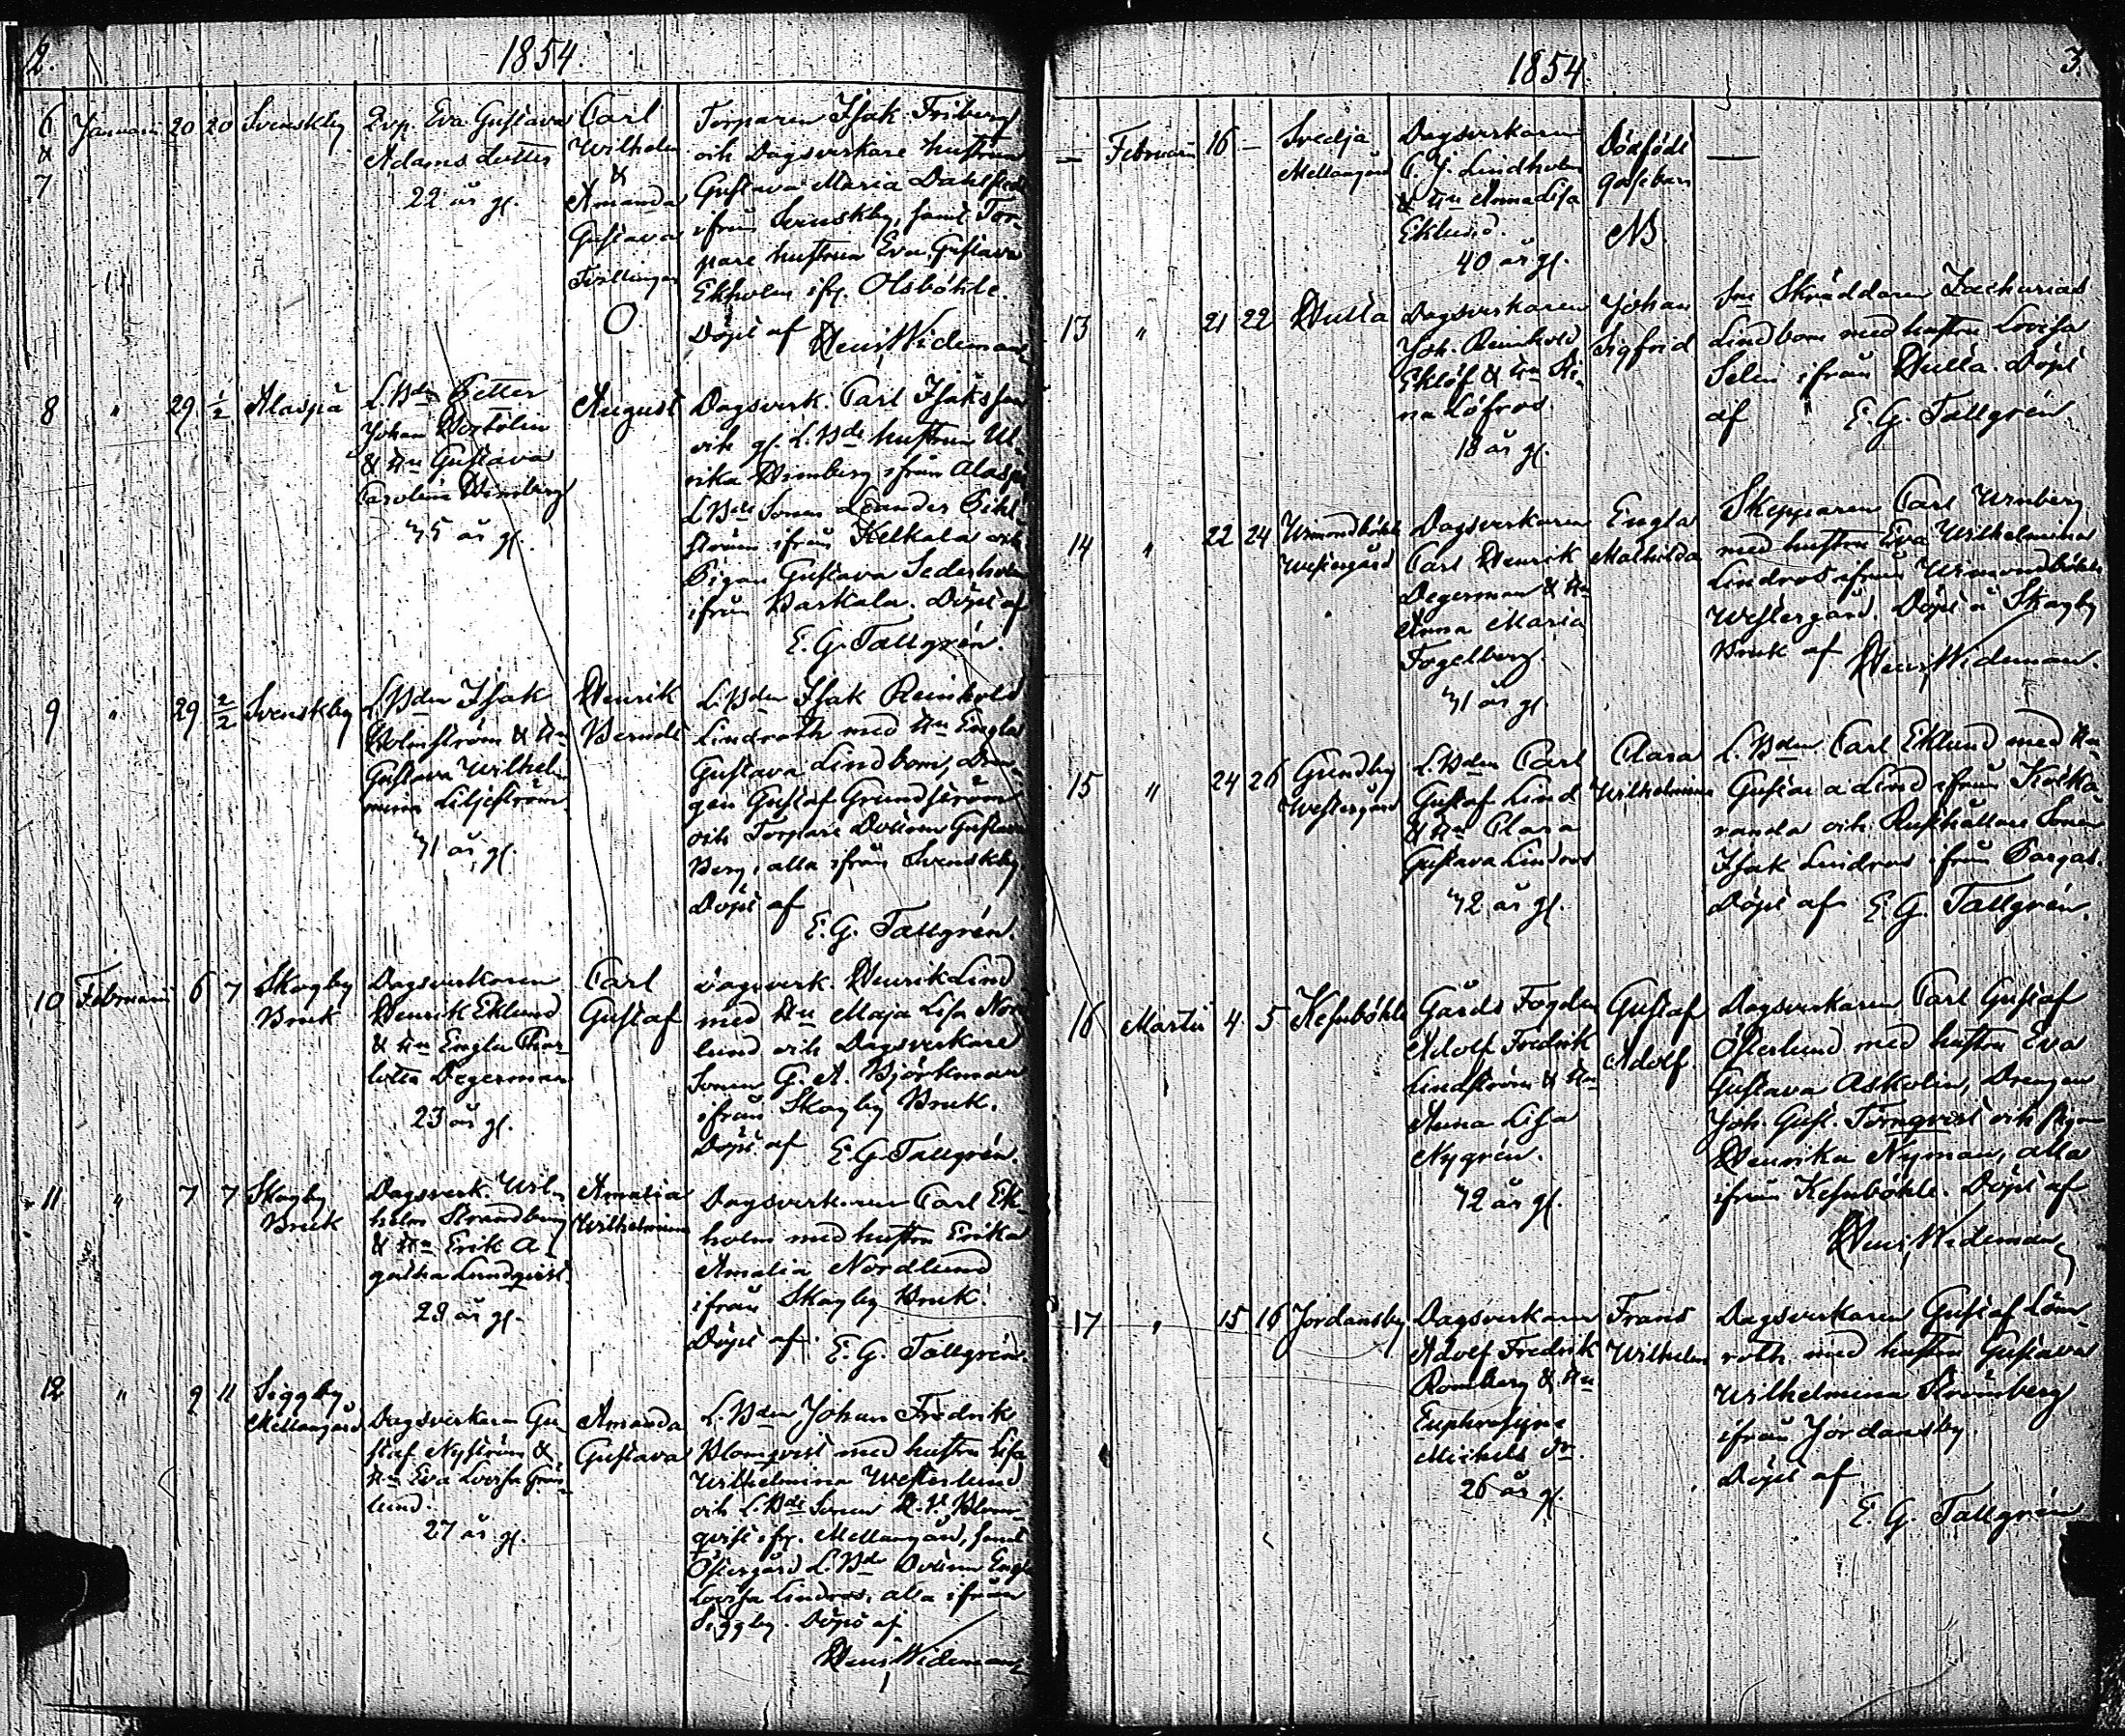 2.
1854.
6 & 7 Januarii 20 20 Svenskby
Qvp. Eva Gustava
Adams dotter
22 år gl.
Carl
Wilhelm
&
Amanda
Gustava
Tvillingar
O
Torparen Isak Friberg
och Dagsverkare hustrun
Gustava Maria Dahlstedt
ifrån Svenskby, samt Tor-
pare hustrun Eva Gustava
Ekholm ifr. Olsböhle.
Döpt af Henr. Wideman
8 " 29 1/2 Alaspä
L.Bdn Petter
Johan
& Hu Gustava
Carolina Wimberg
35 år gl.
August
Dagsverk. Carl Isaksson
och gl. L.Bds hustrun Ul-
rika Wimberg ifrån Alaspä
L.Bds Sonen Leander Pihl-
ström ifrån Kelkala och
Pigan Gustava Sederholm
ifrån Barkala. Döpt af
E. G. Tallgrén.
9 " 29 2/2 Svenskby
L.Bdn Isak
Holmström & Hu
Gustava Wilhel-
mina Liljeström
31 år gl.
Henrik
Berndt
L.Bdn Isak Reinhold
Lindroth med Hu Engla
Gustava Lindbom, Dren-
gen Gustaf Grundström
och Torpare Dottren Gustava
Berg, alla ifrån Svenskby
Döpt af
E. G. Tallgrén.
10 Februarii 6 7 Skogby
Bruk
Dagsverkaren
Henrik Eklund
& Hu Engla Char-
lotta Degerman
23 år gl.
Carl
Gustaf
Dagsverk. Henrik Lind
med Hu Maja Lisa Nor-
lund och Dagsverkare
Sonen G. A. Björkman
ifrån Skogby Bruk.
Döpt af E. G. Tallgrén.
11 " 7 7 Skogby
Bruk
Dagsverk. Wil-
helm Strandberg
& Hu Erik A-
gatha Lundqvist.
28 år gl.
Amalia
Wilhelmina
Dagsverkaren Carl Ek-
holm med hustru Erika
Amalia Nordlund
ifrån Skogby Bruk.
Döpt af E. G. Tallgrén.
12 " 9 11 Siggby
Mellangård
Dagsverkaren Gu-
staf Nyström &
Hu Eva Lovisa Grön-
lund.
27 år gl.
Amanda
Gustava
L.Bdn Johan Fredrik
Blomqvist med hustru Lisa
Wilhelmina Westerlund
och L.Bds Sonen K. V. Blom-
qvist ifr. Mellangård, samt
Östergård L.Bds Dottren Engla
Lovisa Lindros, alla ifrån
Siggby. Döpt af
Henr. Wideman
1854.
3.
— Februarii 16 — Svedja
Mellangård
Dagsverkaren
C. J. Lindholm
& Hu Anna Lisa
Eklund.
40 år gl.
Dödfödt
gossebarn
NB
—
13 " 21 22 Hulta
Dagsverkaren
Joh. Reinhold
Eklöf & Hu Sti-
na Löfros.
18 år gl.
Johan
Sigfrid
Sn Skräddaren Zacharias
Lindbom med hustru Lovisa
Selin ifrån Hulta. Döpt
af E. G. Tallgrén
14 " 22 24 Wimondböhle
Westergård
Dagsverkaren
Carl Henrik
Degerman & Hu
Anna Maria
Fogelberg.
31 år gl.
Engla
Mathilda
Skepparen Carl Wrnberg
med hustru Eva Wilhelmina
Lindros ifrån Wimondböhle
Westergård. Döpt å Skogby
Bruk af Henr. Wideman.
15 " 24 26 Grundby
Westergård
L.Bdn Carl
Gustaf Lind
& Hu Clara
Gustava Lindros
32 år gl.
Clara
Wilhelmina
L.Bdn Carl Eklund med Hu
Gustava Lind ifrån Koska-
randa och Rusthållare Sonen
Isak Lindros ifrån Pargas.
Döpt af E. G. Tallgrén.
16 Martii 4 5 Kesuböhle
Gårds Fogden
Adolf Fredrik
Lindström & Hu
Anna Lisa
Nygrén.
32 år gl.
Gustaf
Adolf.
Dagsverkaren Carl Gustaf
Österlund med hustru Eva
Gustava Askolin, Drengen
Joh. Gust. Törnqvist och Pigan
Henrika Nyman, alla
ifrån Kesuböhle. Döpt af
Henr. Wideman
17 " 15 16 Jordansby
Dagsverkaren
Adolf Fredrik
Romberg & Hu
Euphrosyne
Michels dr.
26 år gl.
Frans
Wilhelm
Dagsverkaren Gustaf Lönn-
roth med hustru Gustava
Wilhelmina Strömberg
ifrån Jordansby.
Döpt af
E. G. Tallgrén